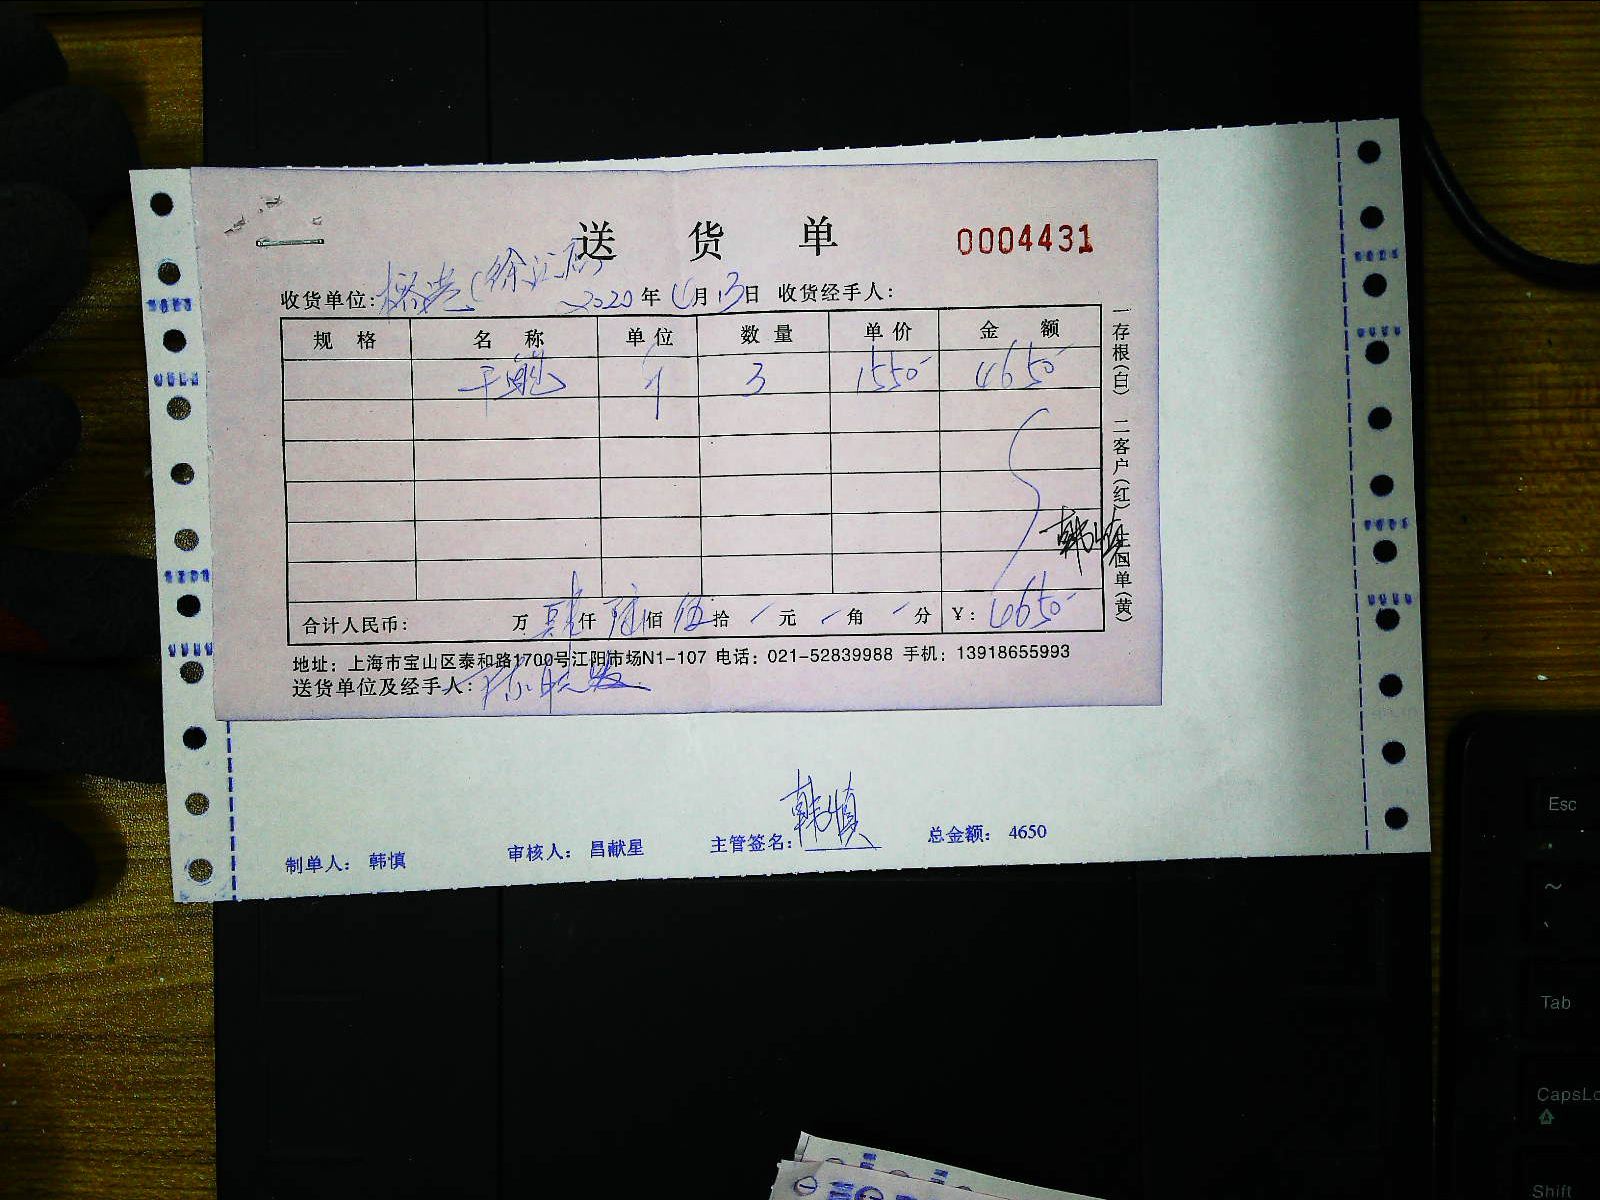 送 货 单
0004431
收货单位: (徐汇店) 2020年 月13日 收货经手人:
规 格 名 称 单位 数 量 单价 金 额
干鲍 个 3 1550- 4650-
韩慎
合计人民币: 万 肆仟 陆佰 伍拾 元 角 分 ¥: 4650-
地址: 上海市宝山区泰和路1700号江阳市场N1-107 电话: 021-52839988 手机: 13918655993
送货单位及经手人:
一存根(白) 二客户(红) 单(黄)
制单人: 韩慎 审核人: 昌献星 主管签名: 韩慎 总金额: 4650
Esc
~
Tab
CapsLo
Shift